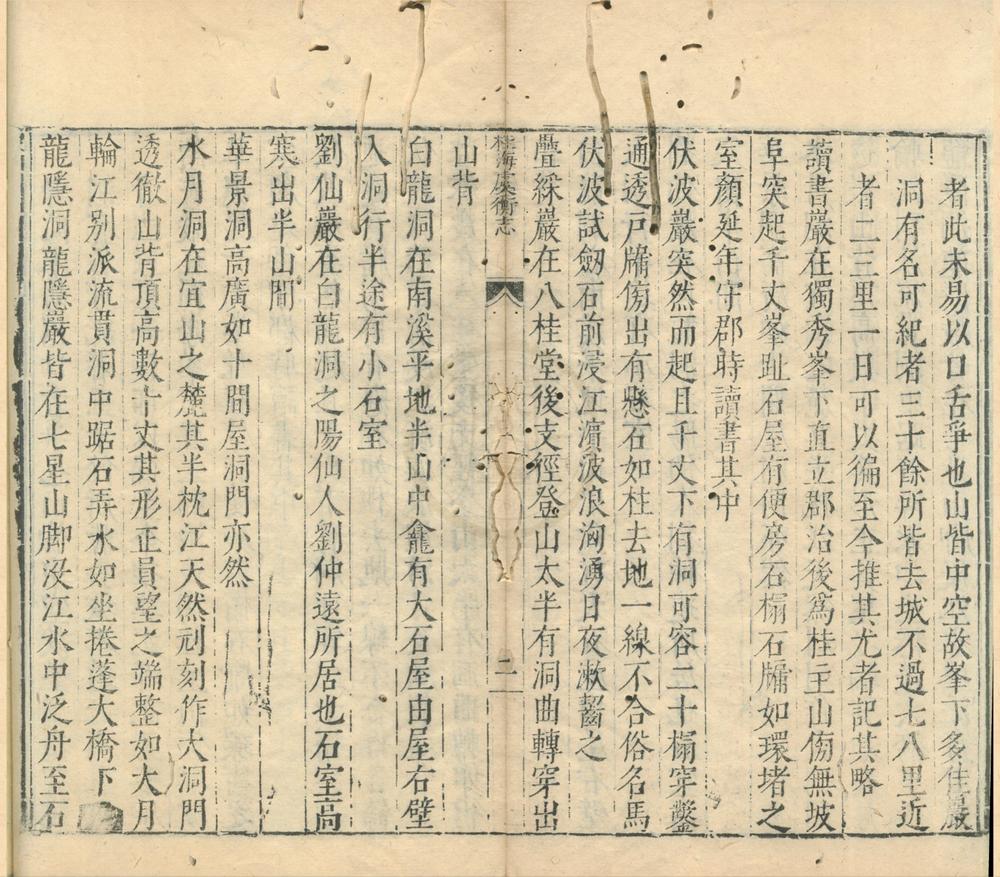 者此未易以口舌爭也山皆中空故峯下多佳巖
洞有名可紀者三十餘所皆去城不過七八里近
者二三里一日可以徧至今推其尤者記其略
讀書巖在獨秀峯下直立郡治後爲桂主山傍無坡
阜突起千丈峯趾石屋有便房石榻石牖如環堵之
室顏延年守郡時讀書其中
伏波巖突然而起且千丈下有洞可容二十榻穿鑿
通透戸牖傍出有懸石如柱去地一線不合俗名馬
伏波試劒石前浸江濵波浪洶湧日夜漱齧之
疊綵巖在八桂堂後支徑登山太半有洞曲轉穿出
山背
桂海虞衡志
二
白龍洞在南溪平地半山中龕有大石屋由屋右壁
入洞行半途有小石室
劉仙巖在白龍洞之陽仙人劉仲遠所居也石室高
寒出半山間
華景洞高廣如十間屋洞門亦然
水月洞在宜山之麓其半枕江天然刓刻作大洞門
透徹山背頂高數十丈其形正員望之端整如大月
輪江别派流貫洞中踞石弄水如坐捲蓬大橋下
龍隱洞龍隱巖皆在七星山脚没江水中泛舟至石